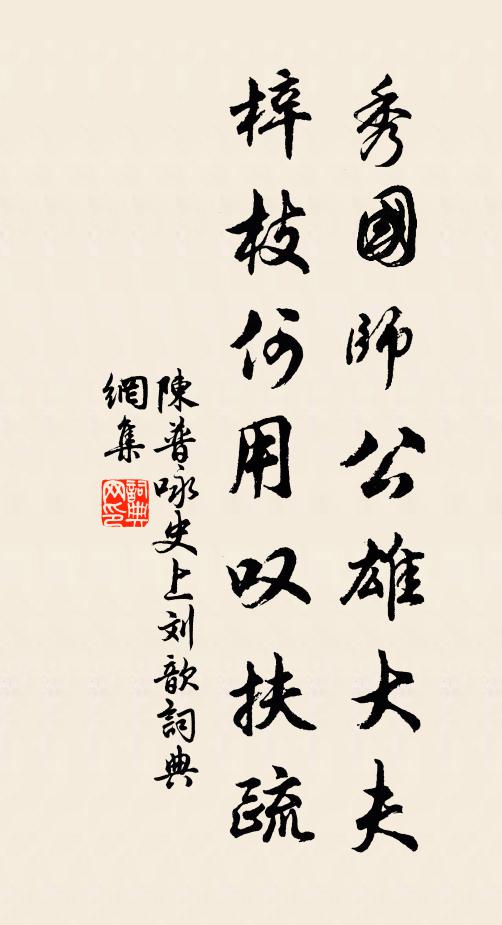 秀國師公雄大夫
梓枝何用叹扶疏
陳普咏史上刘歆詞典
網集
詞典
网印